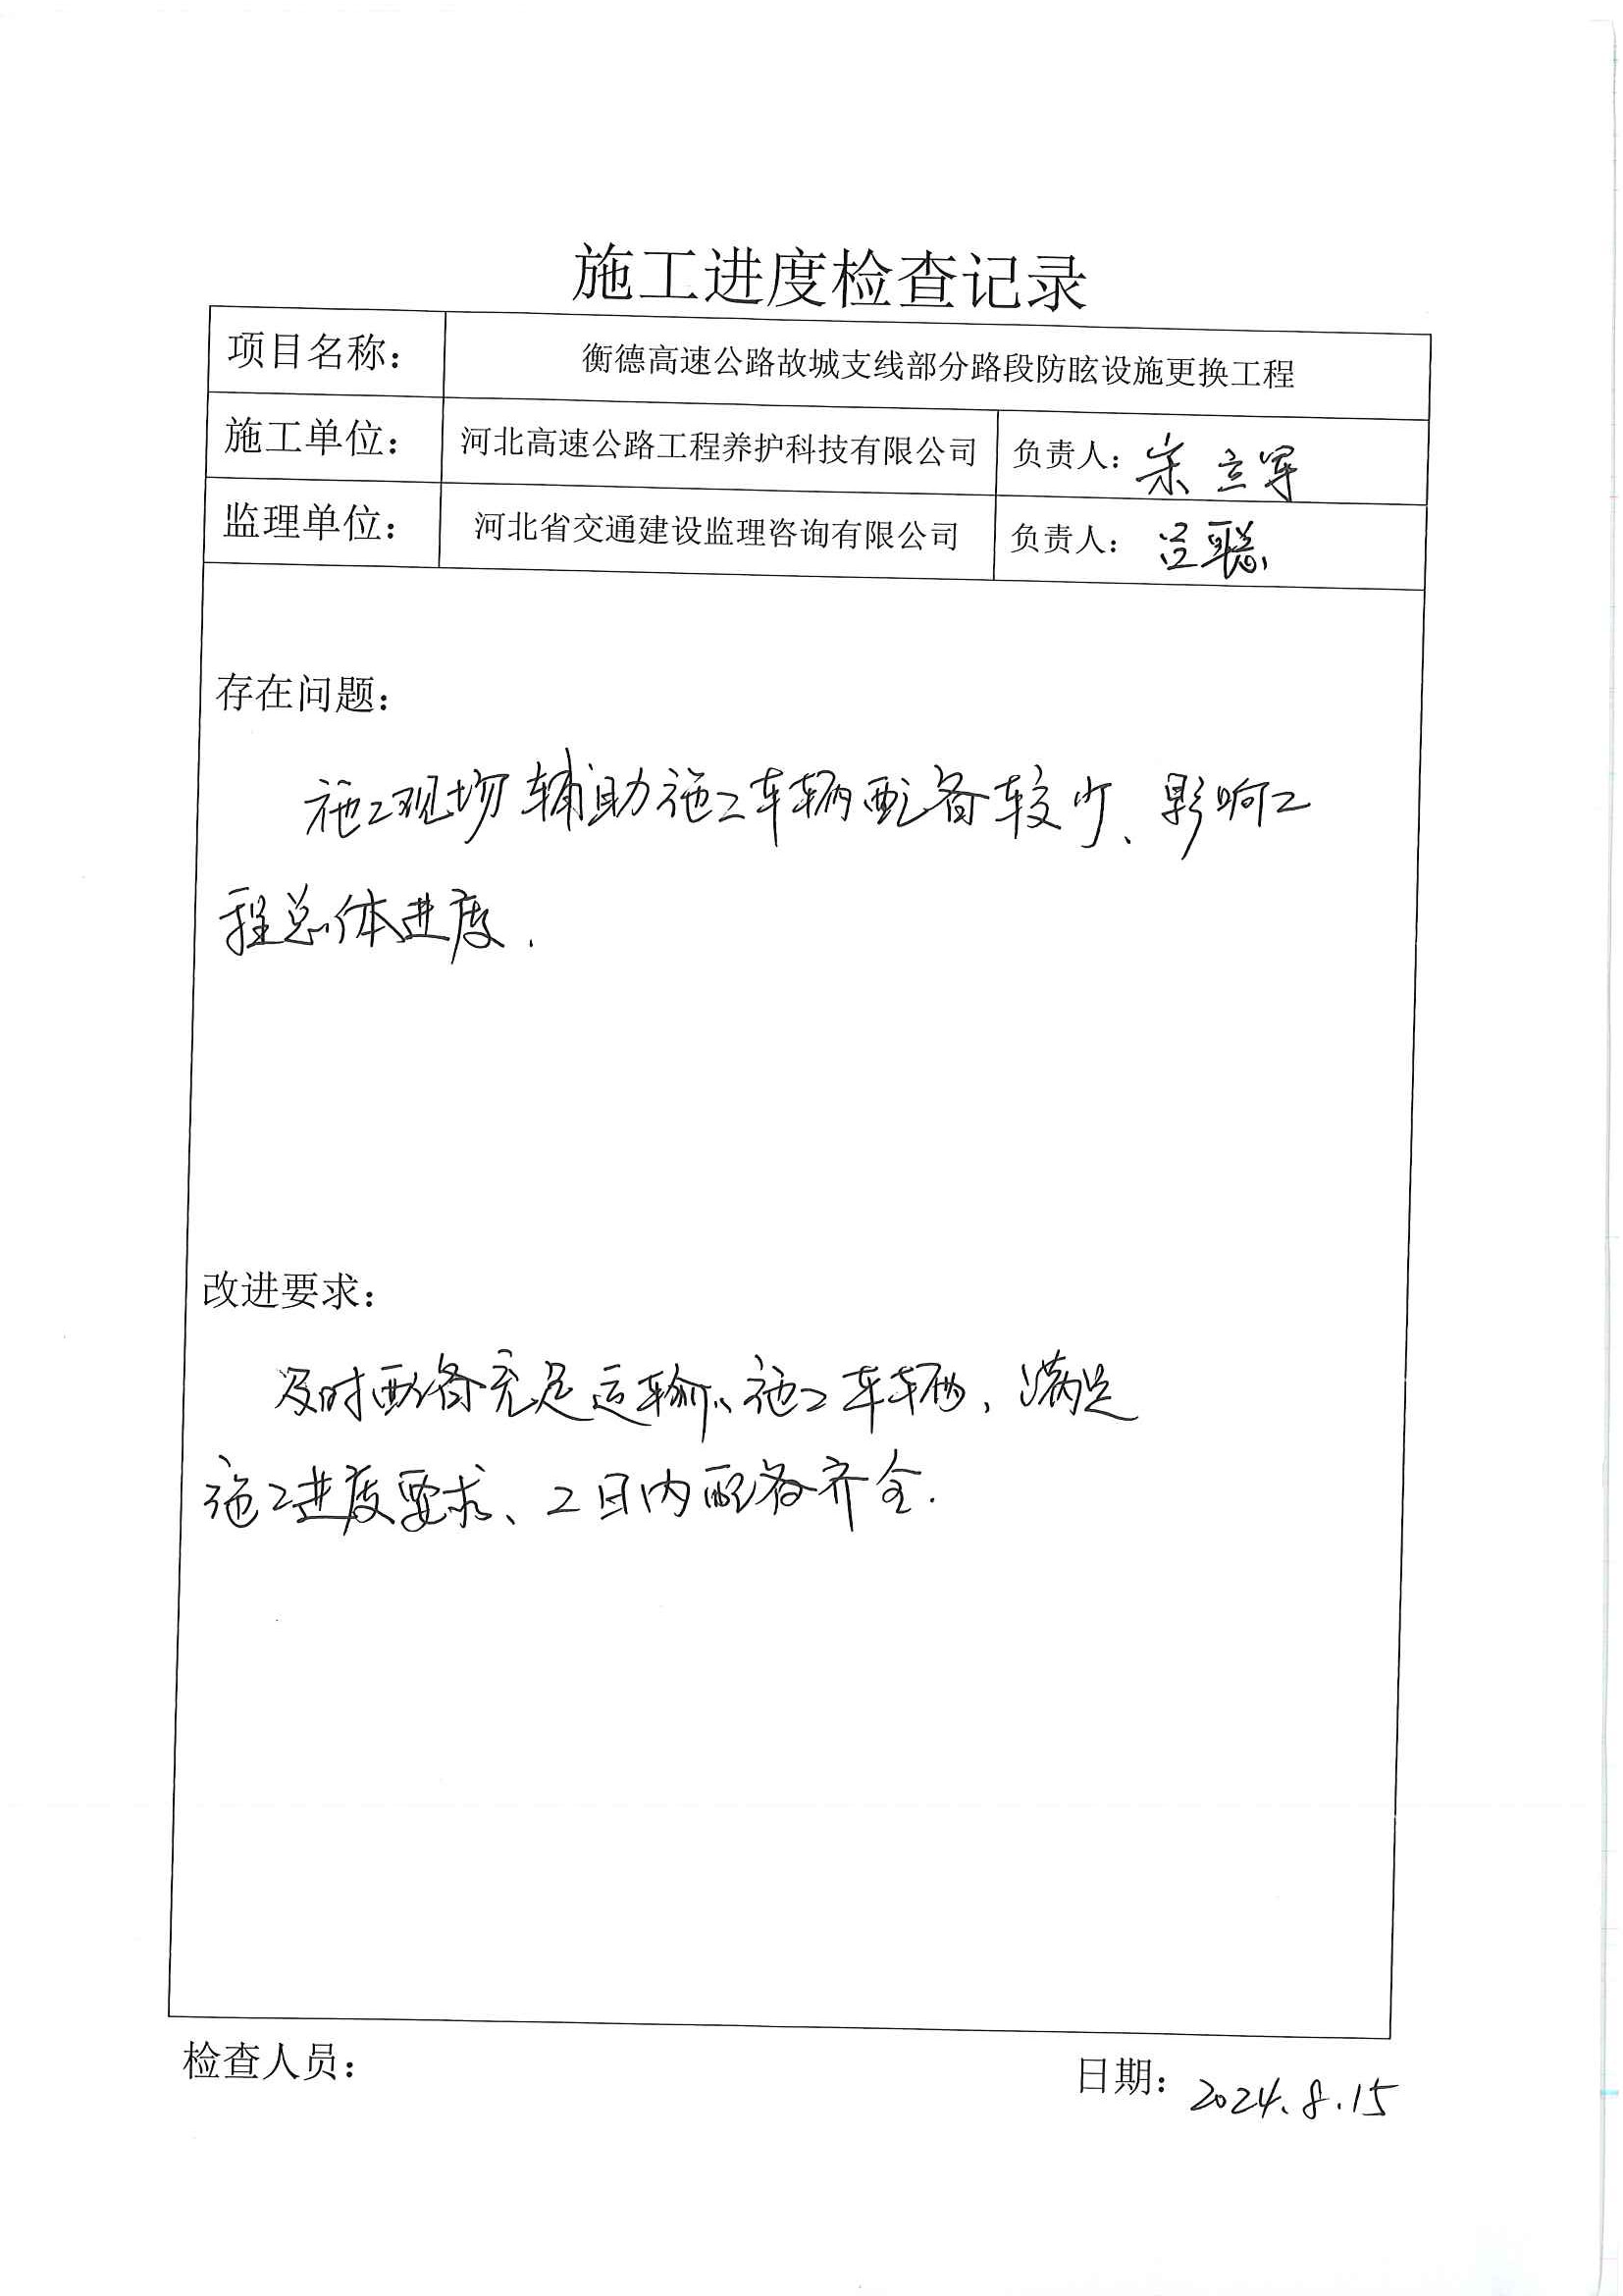 施工进度检查记录
项目名称： 衡德高速公路故城支线部分路段防眩设施更换工程
施工单位： 河北高速公路工程养护科技有限公司 负责人：宋立军
监理单位： 河北省交通建设监理咨询有限公司 负责人：吕聪
存在问题：
施工现场辅助施工车辆配备较少、影响工
程总体进度.
改进要求：
及时配备充足运输、施工车辆，满足
施工进度要求、2日内配备齐全.
检查人员： 日期：2024.8.15